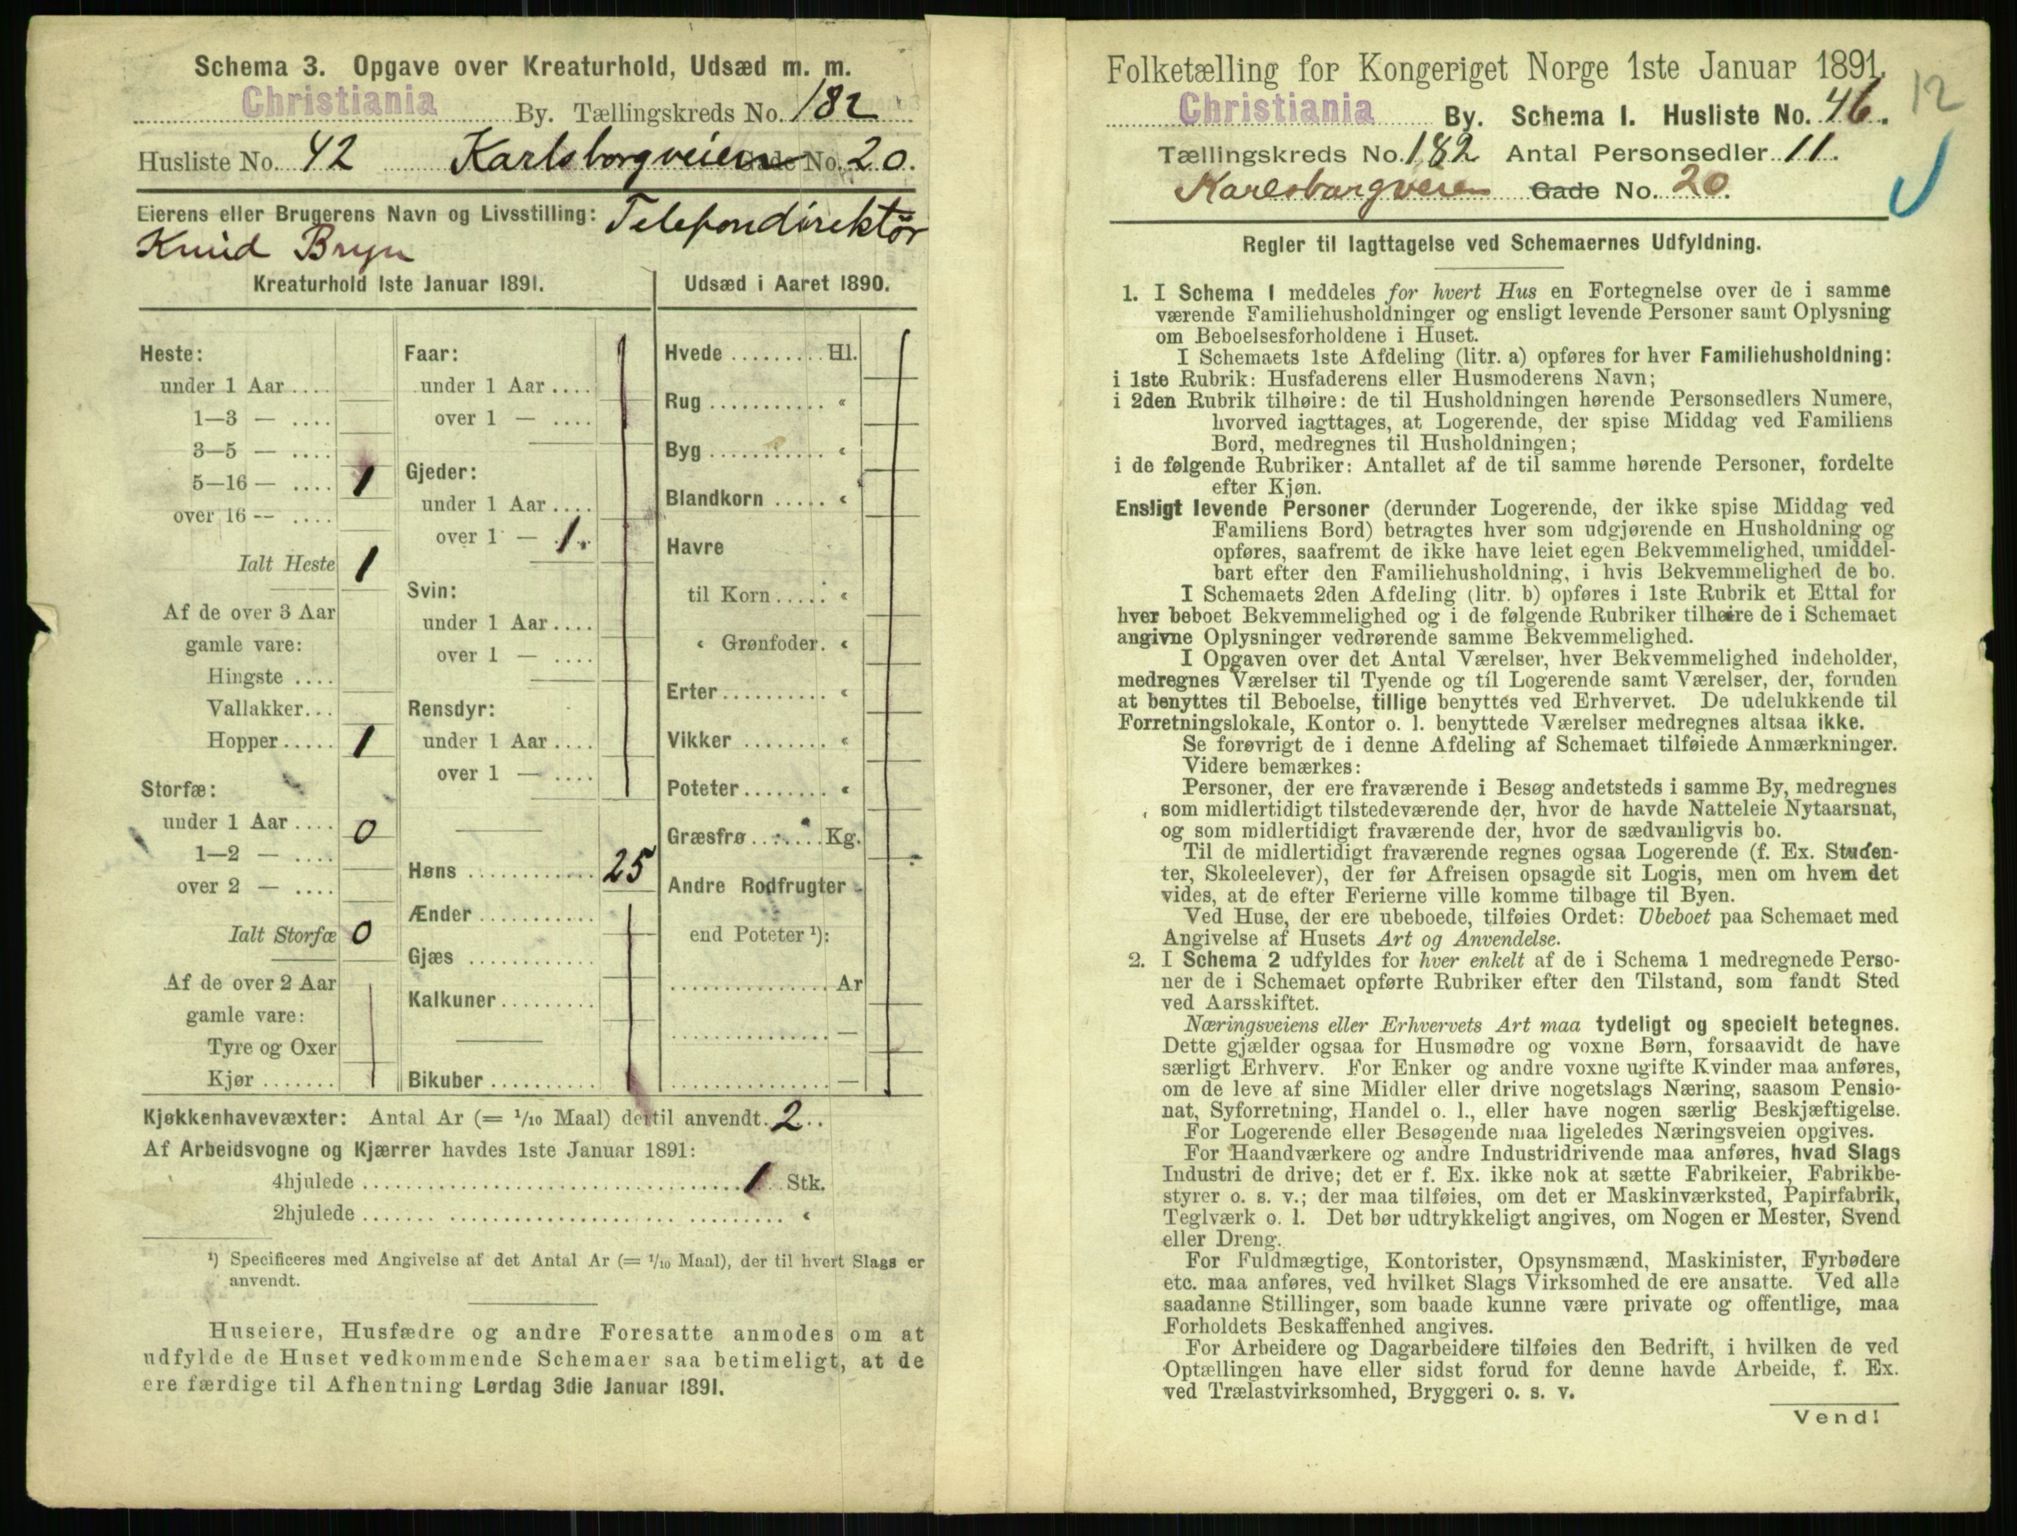 Schema 3. Opgave over Kreaturhold, Udsæd m. m.
Christiania By. Tællingskreds No. 182
Husliste No. 42 Karlsborgveien Gade No. 20.
Eierens eller Brugerens Navn og Livsstilling: Telefondirektør
Knud Bryn
Kreaturhold 1ste Januar 1891.
Heste:
under 1 Aar ....
1—3 — ....
3—5 — ....
5—16 — .... 1
over 16 — ....
Ialt Heste 1
Af de over 3 Aar
gamle vare:
Hingste ....
Vallakker...
Hopper..... 1
Storfæ:
under 1 Aar .... 0
1—2 — ....
over 2 — ....
Ialt Storfæ 0
Af de over 2 Aar
gamle vare:
Tyre og Oxer
Kjør.......
Faar:
under 1 Aar ....
over 1 — ....
Gjeder:
under 1 Aar ....
over 1 — 1.
Svin:
under 1 Aar ....
over 1 — ....
Rensdyr:
under 1 Aar ....
over 1 — ....
Høns ............ 25
Ænder...........
Gjæs ............
Kalkuner.........
Bikuber ..........
Udsæd i Aaret 1890.
Hvede ......... Hl.
Rug ........... «
Byg ........... «
Blandkorn ..... «
Havre
til Korn ..... «
« Grønfoder. «
Erter.......... «
Vikker ........ «
Poteter........ «
Græsfrø ....... Kg.
Andre Rodfrugter
end Poteter ¹):
............... Ar
............... —
............... —
Kjøkkenhavevæxter: Antal Ar (= 1/10 Maal) dertil anvendt. 2...
Af Arbeidsvogne og Kjærrer havdes 1ste Januar 1891:
4hjulede .................................. 1 Stk.
2hjulede .................................. «
¹) Specificeres med Angivelse af det Antal Ar (= 1/10 Maal), der til hvert Slags er
anvendt.
Huseiere, Husfædre og andre Foresatte anmodes om at
udfylde de Huset vedkommende Schemaer saa betimeligt, at de
ere færdige til Afhentning Lørdag 3die Januar 1891.
Folketælling for Kongeriget Norge 1ste Januar 1891.
12
Christiania By. Schema I. Husliste No. 46.
Tællingskreds No. 182 Antal Personsedler 11.
Karlsborgveien Gade No. 20.
Regler til Iagttagelse ved Schemaernes Udfyldning.
1. I Schema I meddeles for hvert Hus en Fortegnelse over de i samme
værende Familiehusholdninger og ensligt levende Personer samt Oplysning
om Beboelsesforholdene i Huset.
I Schemaets 1ste Afdeling (litr. a) opføres for hver Familiehusholdning:
i 1ste Rubrik: Husfaderens eller Husmoderens Navn;
i 2den Rubrik tilhøire: de til Husholdningen hørende Personsedlers Numere,
hvorved iagttages, at Logerende, der spise Middag ved Familiens
Bord, medregnes til Husholdningen;
i de følgende Rubriker: Antallet af de til samme hørende Personer, fordelte
efter Kjøn.
Ensligt levende Personer (derunder Logerende, der ikke spise Middag ved
Familiens Bord) betragtes hver som udgjørende en Husholdning og
opføres, saafremt de ikke have leiet egen Bekvemmelighed, umiddel-
bart efter den Familiehusholdning, i hvis Bekvemmelighed de bo.
I Schemaets 2den Afdeling (litr. b) opføres i 1ste Rubrik et Ettal for
hver beboet Bekvemmelighed og i de følgende Rubriker tilhøire de i Schemaet
angivne Oplysninger vedrørende samme Bekvemmelighed.
I Opgaven over det Antal Værelser, hver Bekvemmelighed indeholder,
medregnes Værelser til Tyende og til Logerende samt Værelser, der, foruden
at benyttes til Beboelse, tillige benyttes ved Erhvervet. De udelukkende til
Forretningslokale, Kontor o. l. benyttede Værelser medregnes altsaa ikke.
Se forøvrigt de i denne Afdeling af Schemaet tilføiede Anmærkninger.
Videre bemærkes:
Personer, der ere fraværende i Besøg andetsteds i samme By, medregnes
som midlertidigt tilstedeværende der, hvor de havde Natteleie Nytaarsnat,
og som midlertidigt fraværende der, hvor de sædvanligvis bo.
Til de midlertidigt fraværende regnes ogsaa Logerende (f. Ex. Studen-
ter, Skoleelever), der før Afreisen opsagde sit Logis, men om hvem det
vides, at de efter Ferierne ville komme tilbage til Byen.
Ved Huse, der ere ubeboede, tilføies Ordet: Ubeboet paa Schemaet med
Angivelse af Husets Art og Anvendelse.
2. I Schema 2 udfyldes for hver enkelt af de i Schema 1 medregnede Perso-
ner de i Schemaet opførte Rubriker efter den Tilstand, som fandt Sted
ved Aarsskiftet.
Næringsveiens eller Erhvervets Art maa tydeligt og specielt betegnes.
Dette gjælder ogsaa for Husmødre og voxne Børn, forsaavidt de have
særligt Erhverv. For Enker og andre voxne ugifte Kvinder maa anføres,
om de leve af sine Midler eller drive nogetslags Næring, saasom Pensio-
nat, Syforretning, Handel o. l., eller have nogen særlig Beskjæftigelse.
For Logerende eller Besøgende maa ligeledes Næringsveien opgives.
For Haandværkere og andre Industridrivende maa anføres, hvad Slags
Industri de drive; det er f. Ex. ikke nok at sætte Fabrikeier, Fabrikbe-
styrer o. s. v.; der maa tilføies, om det er Maskinværksted, Papirfabrik,
Teglværk o. l. Det bør udtrykkeligt angives, om Nogen er Mester, Svend
eller Dreng.
For Fuldmægtige, Kontorister, Opsynsmænd, Maskinister, Fyrbødere
etc. maa anføres, ved hvilket Slags Virksomhed de ere ansatte. Ved alle
saadanne Stillinger, som baade kunne være private og offentlige, maa
Forholdets Beskaffenhed angives.
For Arbeidere og Dagarbeidere tilføies den Bedrift, i hvilken de ved
Optællingen have eller sidst forud for denne havde Arbeide, f. Ex.
ved Trælastvirksomhed, Bryggeri o. s. v.
Vend!